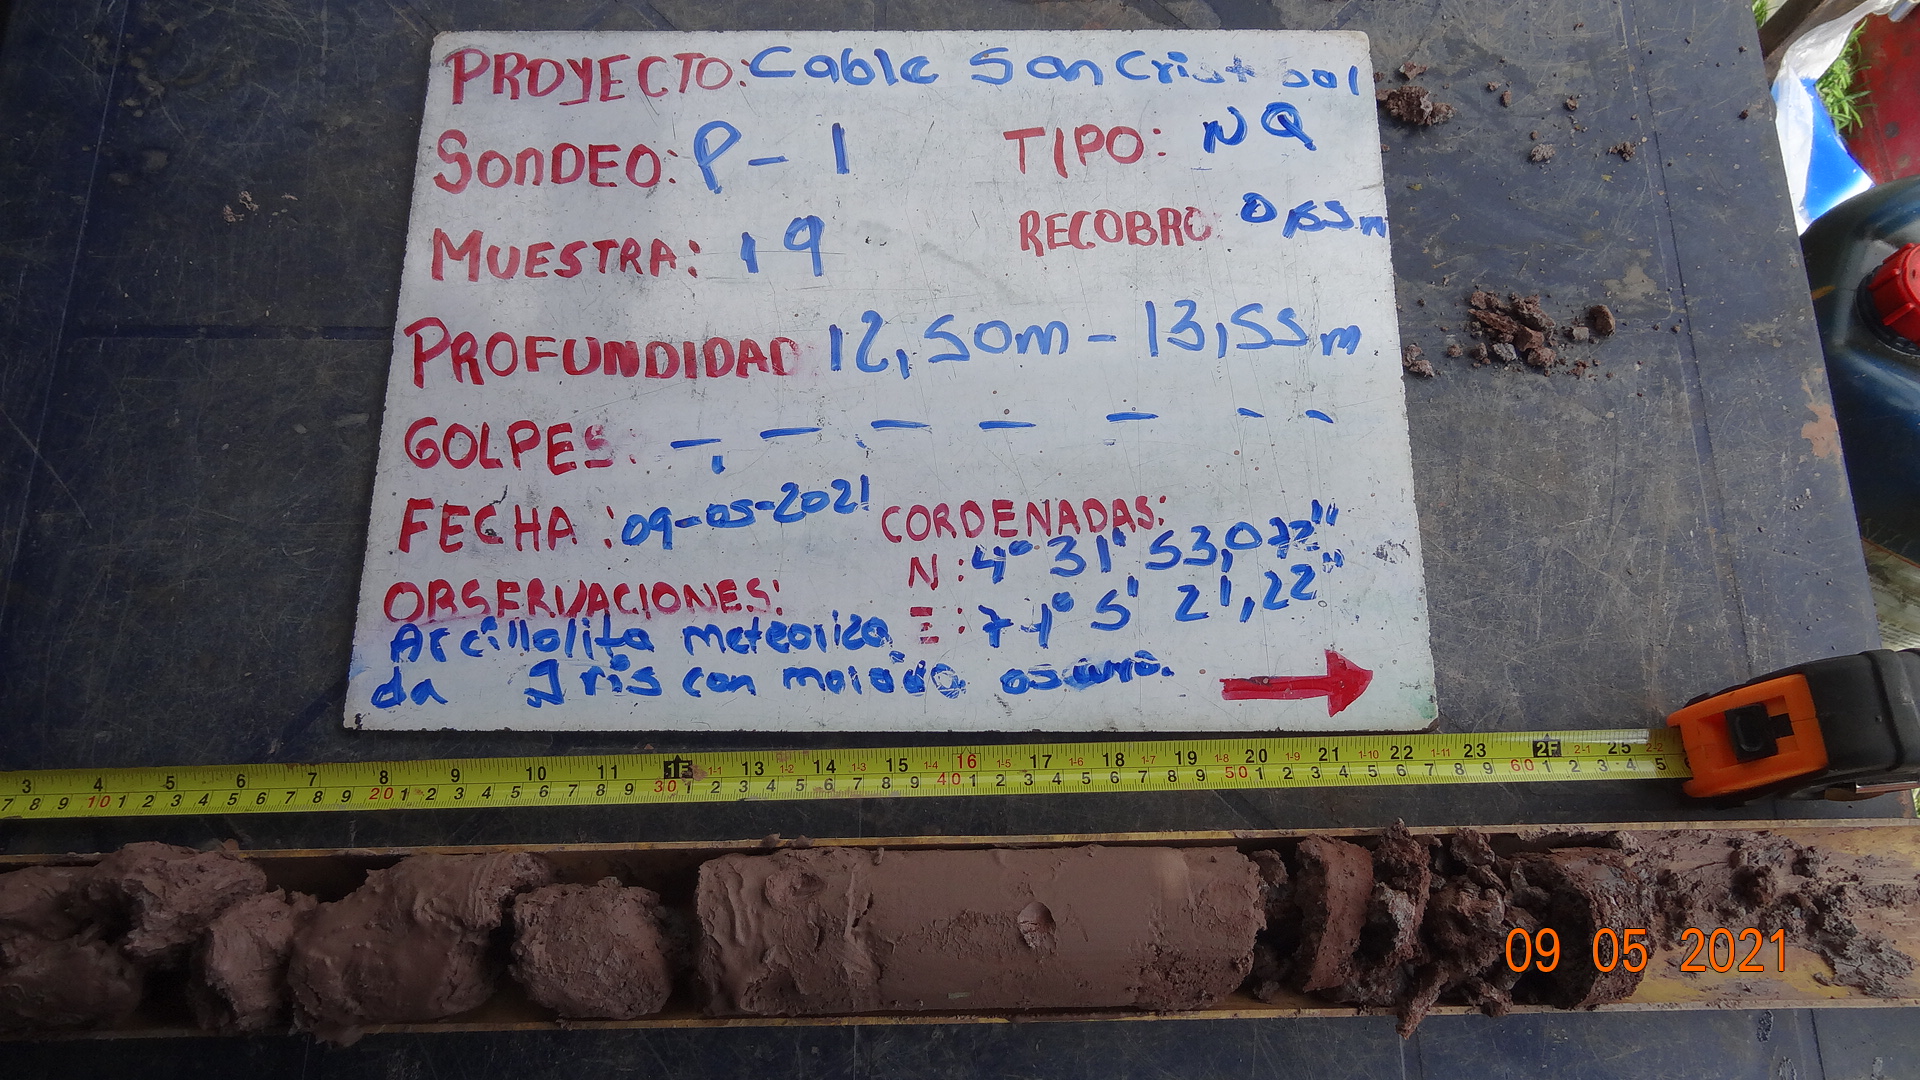 PROYECTO: Cable San Cristobal
SONDEO: P-1 TIPO: NQ
MUESTRA: 19 RECOBRO
PROFUNDIDAD 12,50m - 13,55m
GOLPES: - - - - - - -
FECHA: 09-05-2021
CORDENADAS:
N: 4° 31' 53,072"
E: 74° 5' 21,22"
OBSERVACIONES:
Arcillolita meteoriza
da gris con moiado oscuro.
3 4 5 6 7 8 9 10 11 1F 1-1 13 1-2 14 1-3 15 1-4 16 1-5 17 1-6 18 1-7 19 1-8 20 1-9 21 1-10 22 1-11 23 2F 2-1 25 2-2
7 8 9 10 1 2 3 4 5 6 7 8 9 20 1 2 3 4 5 6 7 8 9 30 1 2 3 4 5 6 7 8 9 40 1 2 3 4 5 6 7 8 9 50 1 2 3 4 5 6 7 8 9 60 1 2 3 4 5
09 05 2021